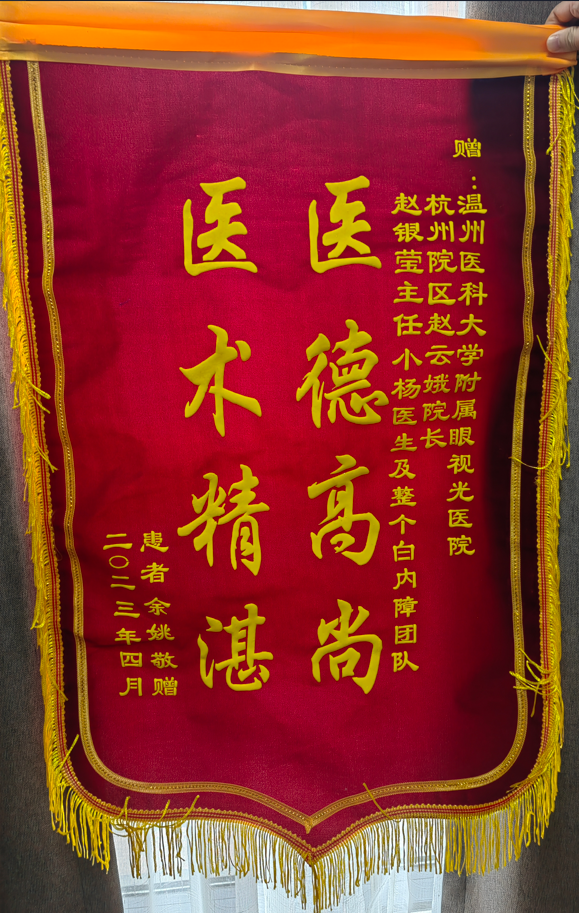 赠：温州医科大学附属眼视光医院
杭州院区赵云娥院长
赵银莹主任小杨医生及整个白内障团队
医德高尚
医术精湛
患者余姚敬赠
二〇二三年四月